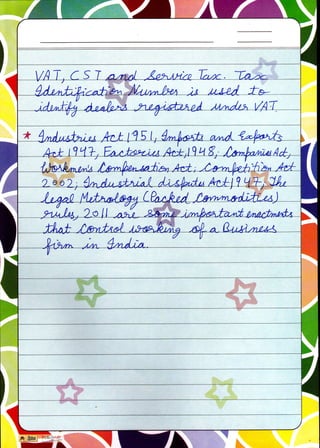 VAT, CST and Service Tax. Tax
Identification Number is used to
identify dealers registered under VAT.
* Industries Act 1951, Imports and Exports
Act 1947, Factories Act, 1948, Companies Act,
Workmen's Compensation Act, Competition Act
2002, Industrial disputes Act 1947, The
Legal Metrology (Packed Commodities)
rules, 2011 are some important enactments
that control working of a Business
firm in India.